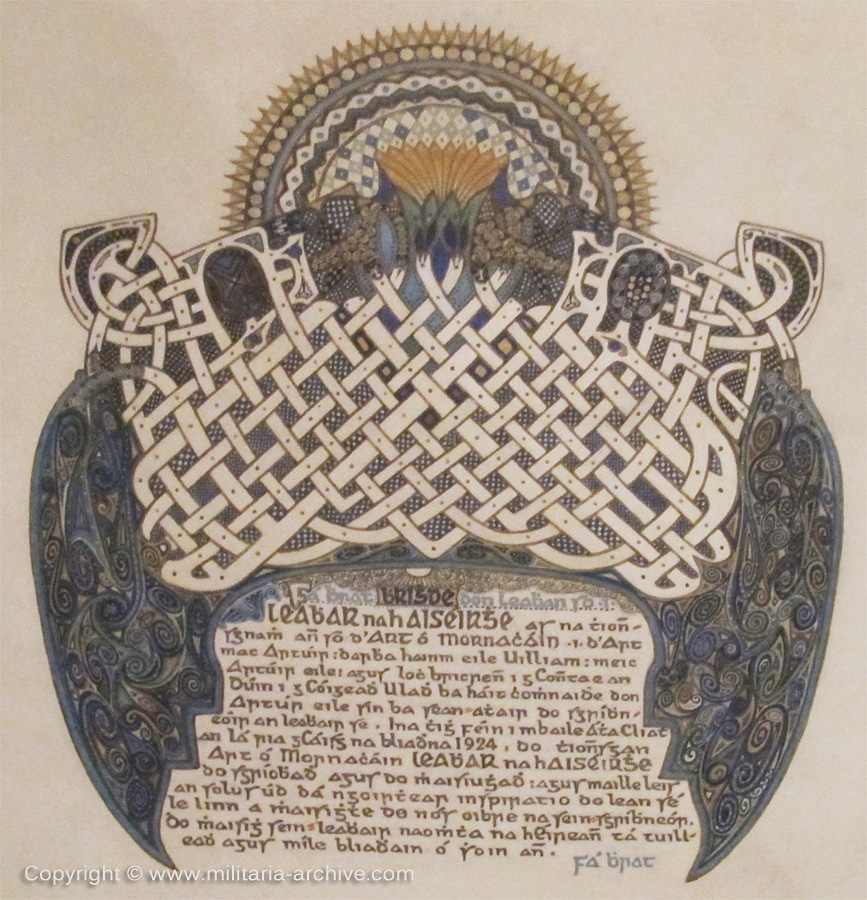 Fá brat BRIGDE don leabar so .i.
LEABAR na hAISEIRGE ar na tion-
sgnaṁ añ so d'Art ó Mornacáin .i. d'Art
mac Artúir: darba hainm eile Uilliam: meic
Artúir eile: agus loċ bricreñ i gContae an
Dúin i gCóigead Ulad ba háit ċoṁnaide don
Artúir eile sin ba sean-aṫair do sgríḃn-
eoir an leabair se. Ina ṫiġ féin i mbaile Áta Cliat
an lá ria gCáisg na bliadna 1924, do tionsgan
Art ó Mornacáin LEABAR na hAISEIRGE
do sgríobad agus do maisiuġad: agus maille leis
an solus úd dá ngoirtear inspiratio do lean sé
le linn a maisigte do nós oibre na sein sgríbneór.
do ṁaisiġ sein-leabair naoṁta na hÉireañ tá tuill-
ead agus míle bliadain ó ṡoin añ.
Fá ḃrat
Copyright © www.militaria-archive.com